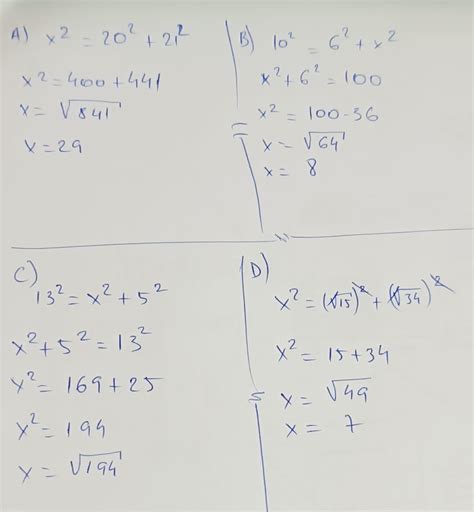 A) x² = 20² + 21²
x² = 400 + 441
x = √841
x = 29
B) 10² = 6² + x²
x² + 6² = 100
x² = 100 - 36
x = √64
x = 8
C)
13² = x² + 5²
x² + 5² = 13²
x² = 169 + 25
x² = 194
x = √194
D)
x² = (√15)² + (√34)²
x² = 15 + 34
x = √49
x = 7